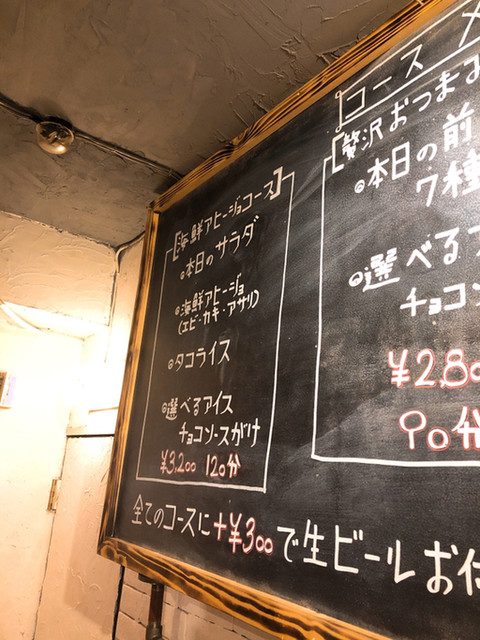 コース
[海鮮アヒージョコース]
◎本日のサラダ
◎海鮮アヒージョ
(エビ・カキ・アサリ)
◎タコライス
◎選べるアイス
チョコソースがけ
¥3,200 120分
[贅沢おつまみ
◎本日の前
7種
◎選べる
チョコ
¥2,80
90分
全てのコースに+¥300で生ビールお付